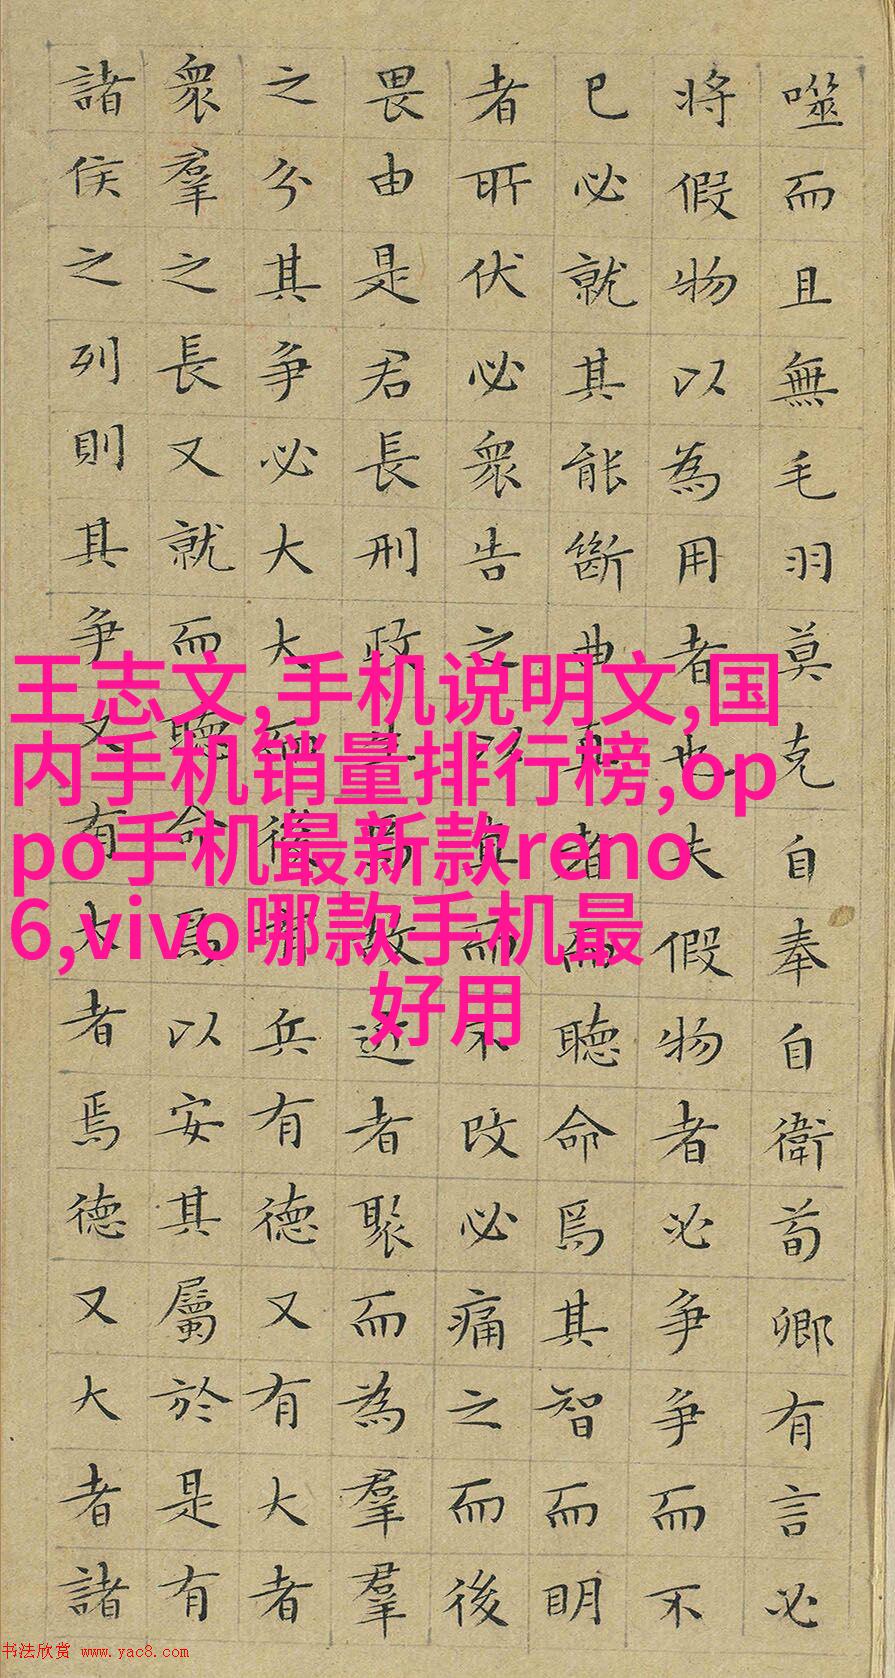 噬而且無毛羽莫克自奉自衛荀卿有言必
將假物以為用者也夫假物者必爭爭而不
已必就其能斷曲直者而聽命焉其智而明
者所伏必衆告之以直而不改必痛之而後
畏由是君長刑政生焉故近者聚而為羣羣
之分其爭必大大而後有兵有德又有大者
衆羣之長又就而聽命焉以安其屬於是有
諸侯之列則其爭又有大者焉德又大者諸
王志文,手机说明文,国
内手机销量排行榜,op
po手机最新款reno
6,vivo哪款手机最
好用
书法欣赏 www.yac8.com